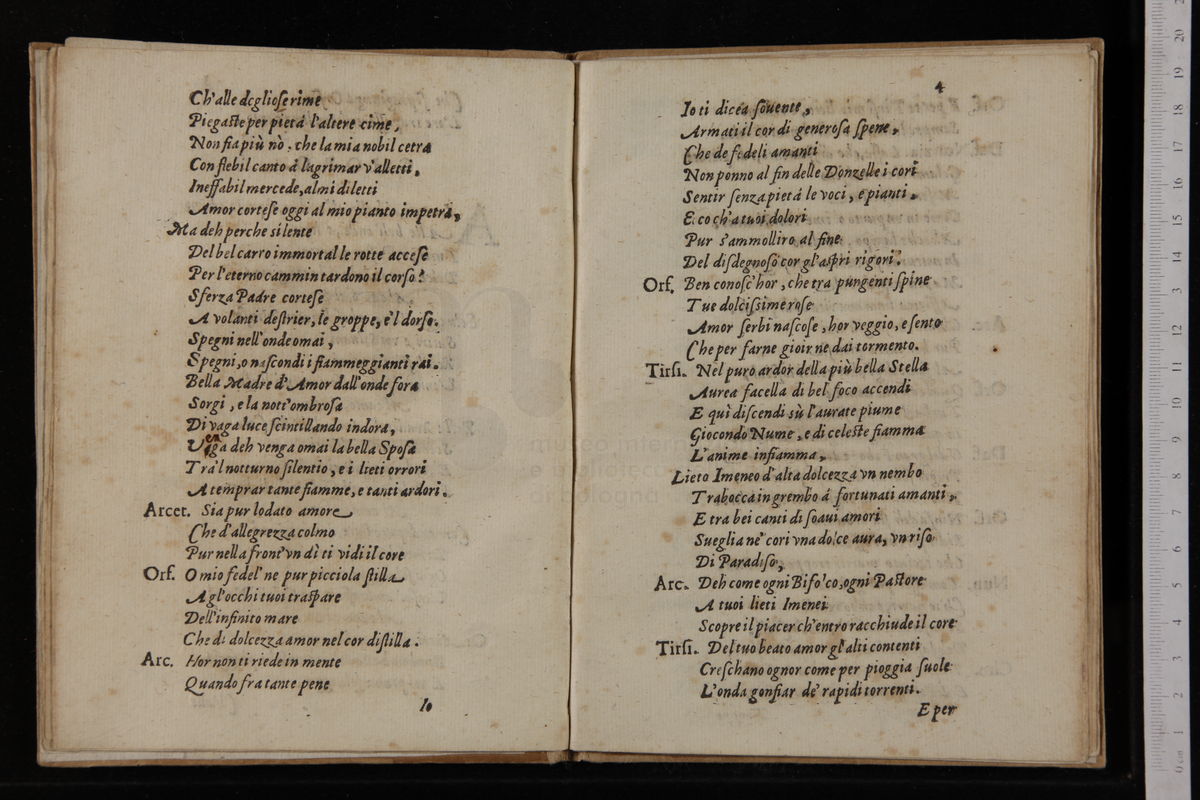 Ch'alle dogliose rime
Piegaste per pietà l'altere cime,
Non fia più nò, che la mia nobil cetra
Con flebil canto à lagrimar v'alletti,
Ineffabil mercede, almi diletti
Amor cortese oggi al mio pianto impetra,
Ma deh perche si lente
Del bel carro immortal le rotte accese
Per l'eterno cammin tardono il corso?
Sferza Padre cortese
A volanti destrier, le groppe, e'l dorso.
Spegni nell'onde omai,
Spegni, o nascondi i fiammeggianti rai.
Bella Madre d'Amor dall'onde fora
Sorgi, e la nott'ombrosa
Di vaga luce scintillando indora,
Venga deh venga omai la bella Sposa
Tra'l notturno silentio, e i lieti orrori
A temprar tante fiamme, e tanti ardori.
Arcet. Sia pur lodato amore
Che d'allegrezza colmo
Pur nella front'vn dì ti vidi il core
Orf. O mio fedel' ne pur picciola stilla
A gl'occhi tuoi traspare
Dell'infinito mare
Che di dolcezza amor nel cor distilla.
Arc. Hor non ti riede in mente
Quando fra tante pene
Io
4
Io ti dicea sovente,
Armati il cor di generosa spene,
Che de fedeli amanti
Non ponno al fin delle Donzelle i cori
Sentir senza pietà le voci, e pianti,
Ecco ch'a tuoi dolori
Pur s'ammolliro al fine
Del disdegnoso cor gl'aspri rigori.
Orf. Ben conosc'hor, che tra pungenti spine
Tue dolcissime rose
Amor serbi nascose, hor veggio, e sento
Che per farne gioir ne dai tormento.
Tirsi. Nel puro ardor della più bella Stella
Aurea facella di bel foco accendi
E quì discendi sù l'aurate piume
Giocondo Nume, e di celeste fiamma
L'anime infiamma,
Lieto Imeneo d'alta dolcezza vn nembo
Trabocca in grembo à fortunati amanti,
E tra bei canti di soaui amori
Sueglia ne' cori vna dolce aura, vn riso
Di Paradiso,
Arc. Deh come ogni Bifolco, ogni Pastore
A tuoi lieti Imenei
Scopre il piacer ch'entro racchiude il core
Tirsi. Del tuo beato amor gl'alti contenti
Creschano ognor come per pioggia suole
L'onda gonfiar de' rapidi torrenti.
E per